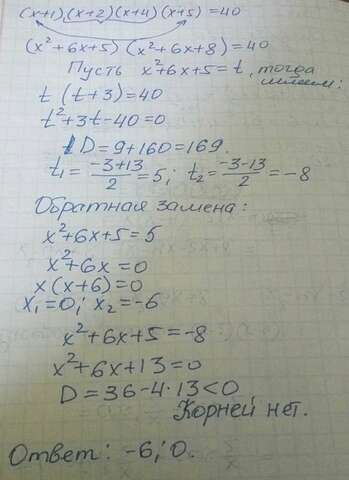 (x+1)(x+2)(x+4)(x+5)=40
(x²+6x+5)(x²+6x+8)=40
Пусть x²+6x+5=t, тогда
имеем:
t(t+3)=40
t²+3t-40=0
D=9+160=169.
t₁=(-3+13)/2=5; t₂=(-3-13)/2=-8
Обратная замена:
x²+6x+5=5
x²+6x=0
x(x+6)=0
x₁=0; x₂=-6
x²+6x+5=-8
x²+6x+13=0
D=36-4·13<0
Корней нет.
Ответ: -6; 0.